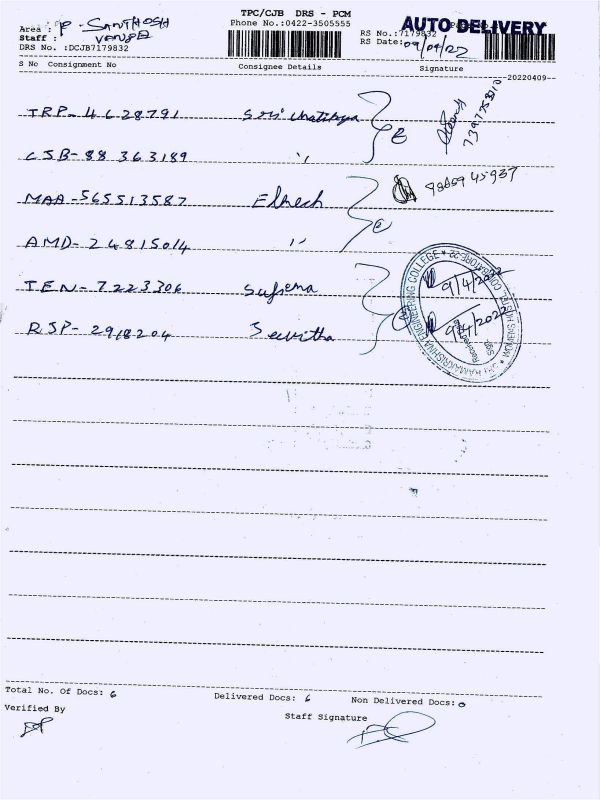 TPC/CJB DRS - PCM
AUTO DELIVERY
Area : P - SANTHOSH
Phone No.:0422-3505555
RS No.:7179832
Staff :
RS Date: 09/04/22
DRS No. :DCJB7179832
S No Consignment No Consignee Details Signature
20220409
TRP- 4628791
CSB- 88 363189 〃
MAA -565513587
98659 45937
AMD- 24815014 〃
TEN- 7223306
9/4/2022
RSP- 2918204
9/4/2022
SRI RAMAKRISHNA ENGINEERING COLLEGE * WOMEN'S HOSTEL, COIMBATORE-22 *
Total No. Of Docs: 6 Delivered Docs: 6 Non Delivered Docs: 0
Verified By
Staff Signature